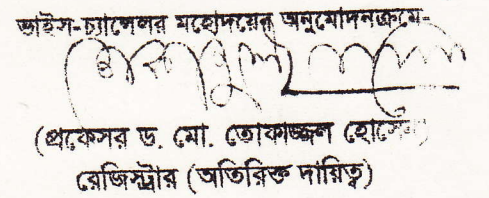 ভাইস-চ্যান্সেলর মহোদয়ের অনুমোদনক্রমে-
(প্রফেসর ড. মো. তোফাজ্জল হোসেন)
রেজিস্ট্রার (অতিরিক্ত দায়িত্ব)